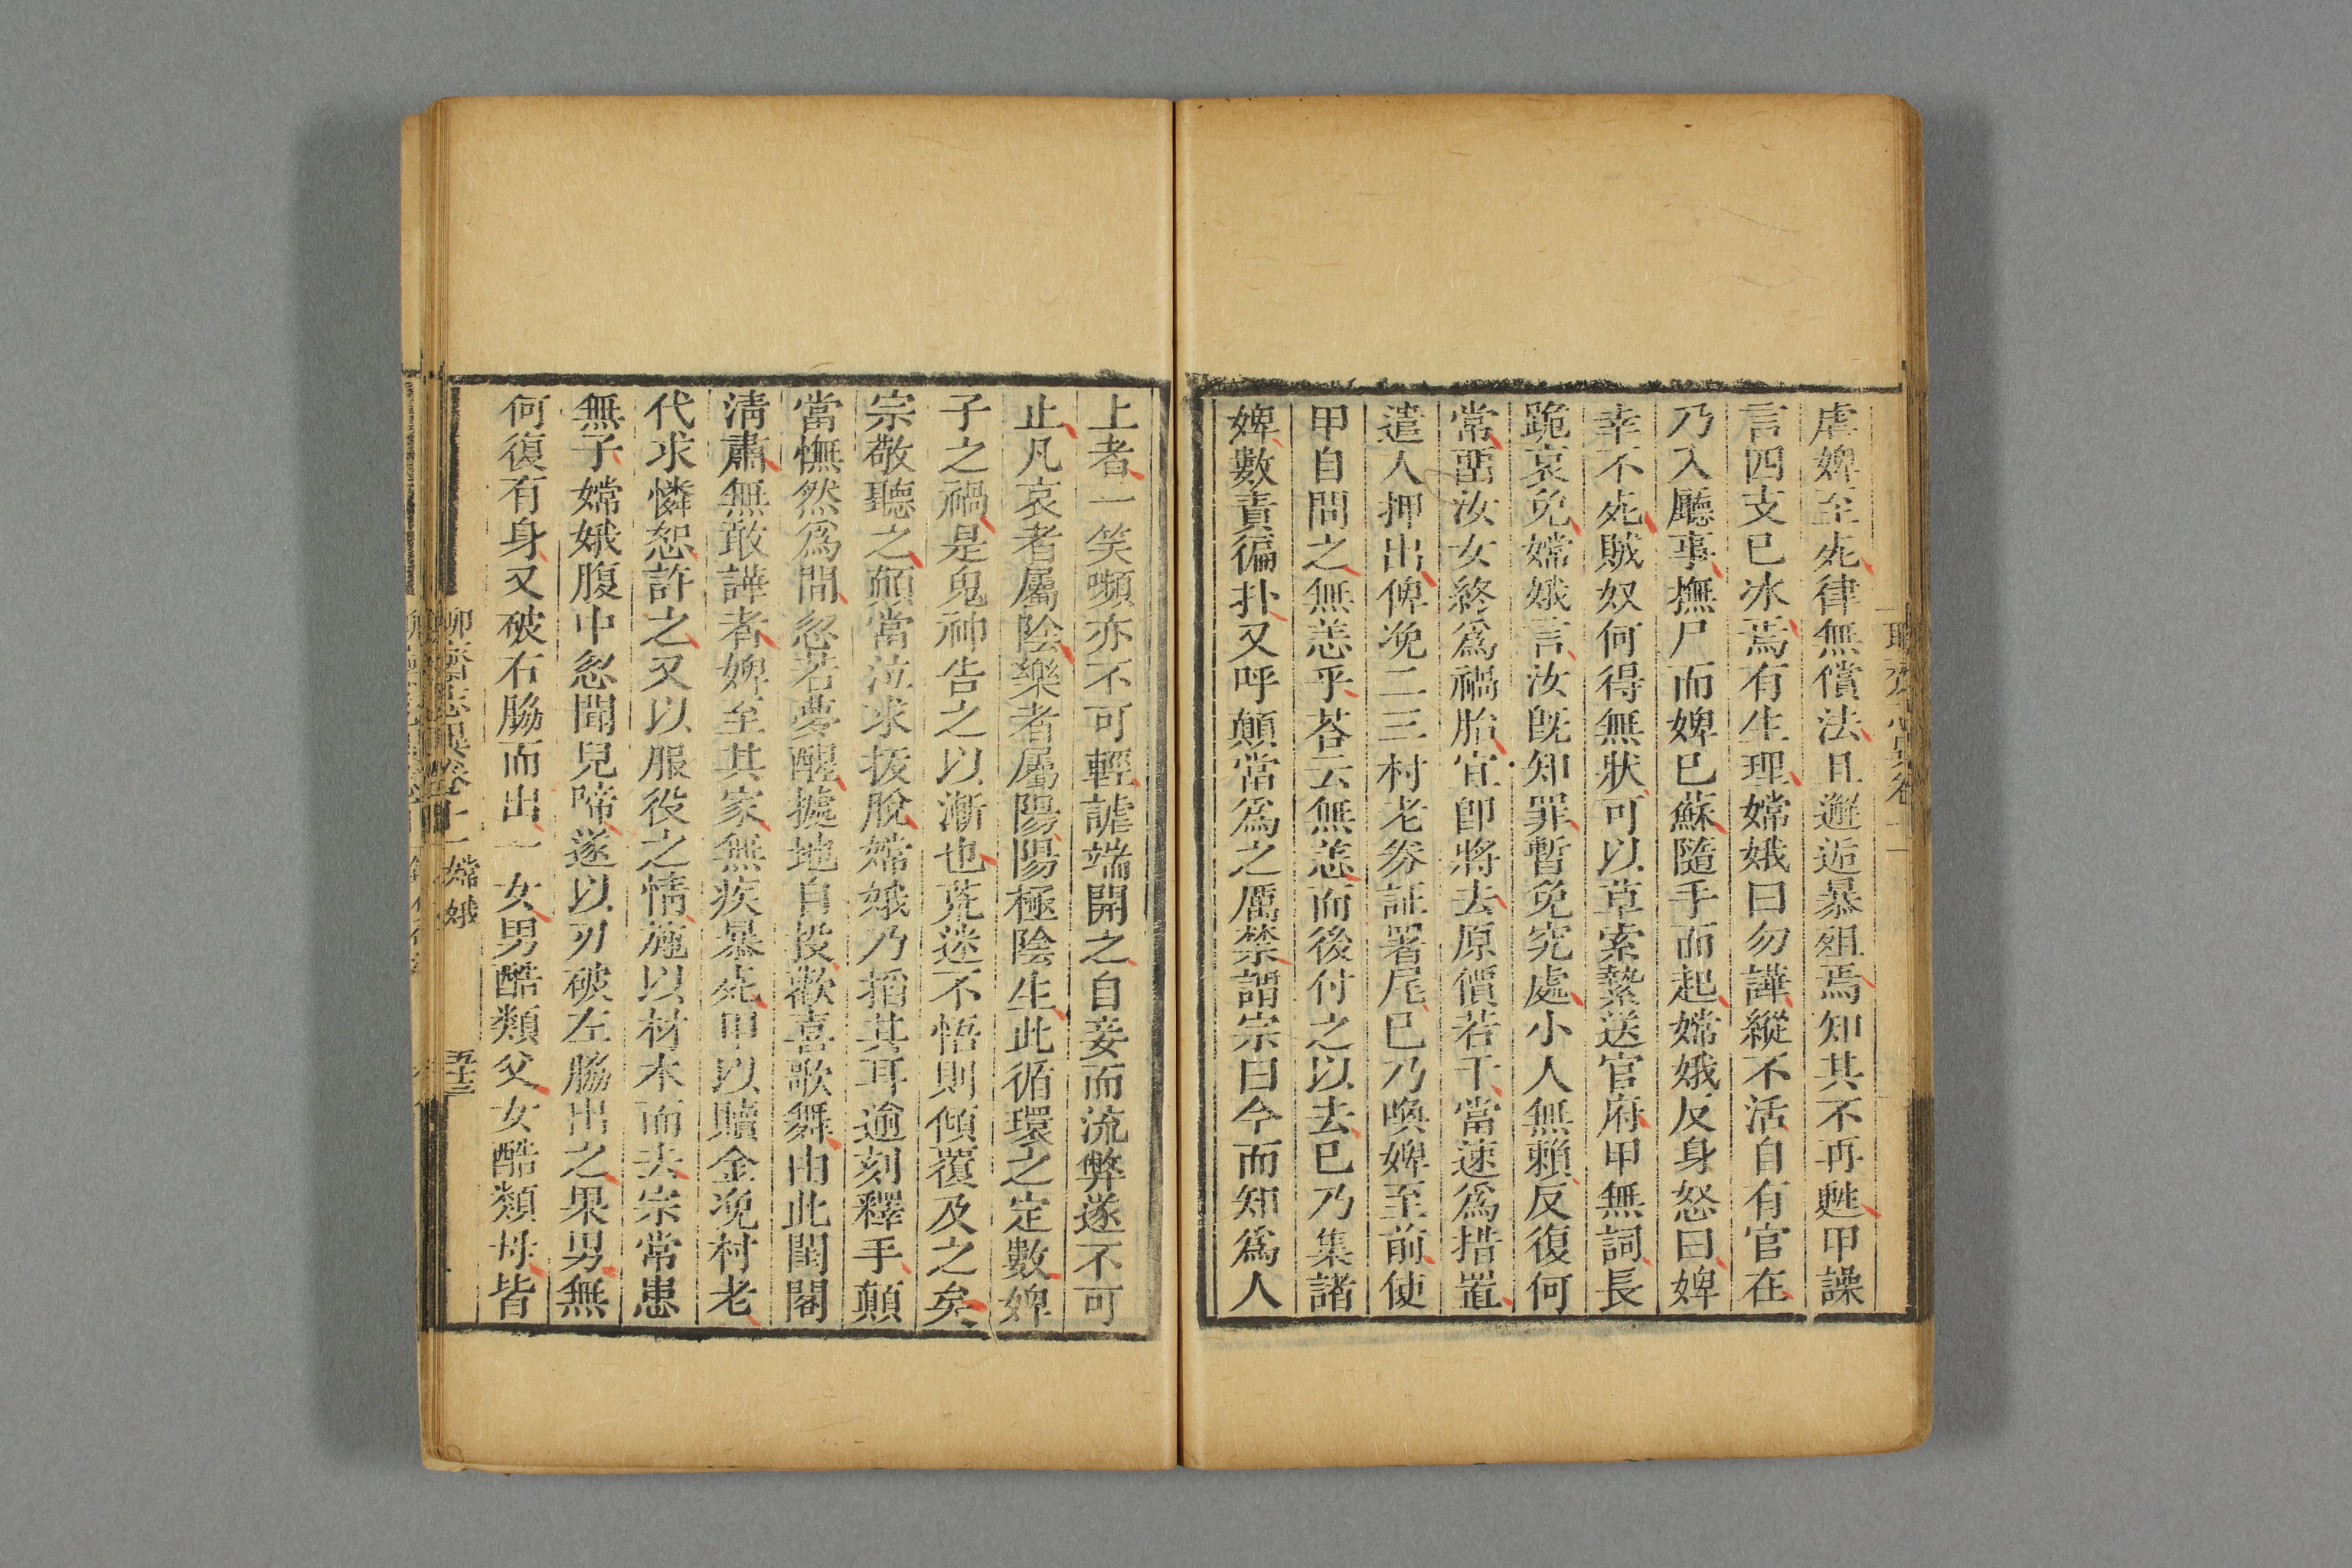 虐婢至死律無償法且邂逅暴殂焉知其不再甦甲譟
言四支已冰焉有生理嫦娥曰勿譁縱不活自有官在
乃入廳事撫尸而婢已蘇隨手而起嫦娥反身怒曰婢
幸不死賊奴何得無狀可以草索縶送官府甲無詞長
跪哀免嫦娥言汝旣知罪暫免究處小人無賴反復何
常畱汝女終爲禍胎宜卽將去原價若干當速爲措置
遣人押出俾浼二三村老券証署尾已乃喚婢至前使
甲自問之無恙乎荅云無恙而後付之以去已乃集諸
婢數責徧扑又呼顛當爲之厲禁謂宗曰今而知爲人
上者一笑嚬亦不可輕謔端開之自妾而流弊遂不可
止凡哀者屬陰樂者屬陽陽極陰生此循環之定數婢
子之禍是鬼神告之以漸也荒迷不悟則傾覆及之矣
宗敬聽之顛當泣求拔脫嫦娥乃掐其耳逾刻釋手顛
當憮然爲間忽若夢醒據地自投歡喜歌舞由此閨閣
清肅無敢譁者婢至其家無疾暴死甲以贖金浼村老
代求憐恕許之又以服役之情施以材木而去宗常患
無子嫦娥腹中忽聞兒啼遂以刃破左脇出之果男無
何復有身又破右脇而出一女男酷類父女酷類母皆
聊齋志異卷十一 嫦娥 五十三